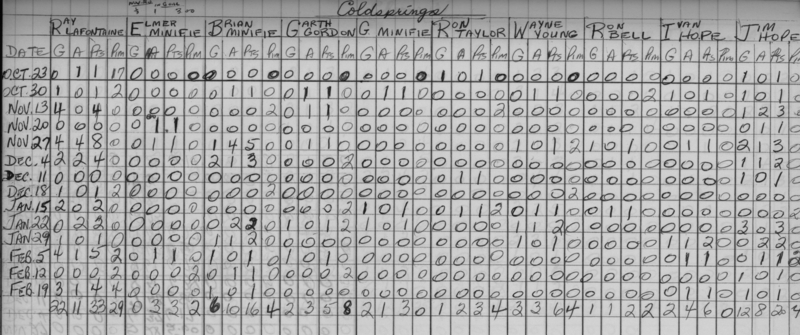 Coldsprings
RAY LAFONTAINE ELMER MINIFIE BRIAN MINIFIE GARTH GORDON G MINIFIE RON TAYLOR WAYNE YOUNG RON BELL IVAN HOPE JIM HOPE
DATE G A Pts Pim G A Pts Pim G A Pts Pim G A Pts Pim G A Pts Pim G A Pts Pim G A Pts Pim G A Pts Pim G A Pts Pim G A Pts Pim
OCT.23 0 1 1 17 0 0 0 0 0 0 0 0 0 0 0 0 0 0 0 0 1 0 1 0 0 0 0 0 0 0 0 0 0 0 0 0 1 0 1 0
OCT.30 1 0 1 2 0 0 0 0 0 1 1 0 0 1 1 0 0 1 1 0 0 0 0 0 0 1 1 0 0 0 0 2 1 0 1 0 1 0 1 0
NOV.13 4 0 4 0 0 0 0 0 0 0 0 2 0 1 1 0 0 0 0 0 0 0 0 2 0 0 0 0 0 0 0 0 0 0 0 0 1 2 3 0
NOV.20 0 0 0 0 0 1 1 0 0 0 0 0 0 0 0 0 0 0 0 0 0 0 0 0 0 0 0 0 0 0 0 0 0 0 0 0 0 1 1 0
NOV 27 4 4 8 0 0 1 1 0 1 4 5 0 0 1 1 0 0 0 0 0 0 0 0 0 1 0 1 2 1 0 1 0 0 1 1 0 2 1 3 0
DEC.4 2 2 4 0 0 0 0 0 2 1 3 0 0 0 0 2 0 0 0 0 0 0 0 0 0 0 0 0 0 0 0 0 0 0 0 0 1 1 2 0
DEC.11 0 0 0 0 0 0 0 0 0 0 0 0 0 0 0 0 0 0 0 0 0 1 1 0 0 0 0 0 0 0 0 0 0 0 0 0 1 0 1 0
DEC.18 1 0 1 2 0 0 0 0 0 0 0 2 0 0 0 0 0 0 0 0 0 0 0 0 0 0 0 2 0 0 0 0 0 0 0 0 0 0 0 0
JAN.15 2 0 2 0 0 0 0 0 0 0 0 0 0 0 0 2 1 0 1 0 0 1 1 2 0 1 1 0 0 1 1 0 0 0 0 0 0 0 0 2
JAN.22 0 2 2 0 0 0 0 0 0 2 2 0 1 0 1 2 1 0 1 0 0 0 0 0 1 1 2 0 0 0 0 0 0 0 0 0 3 0 3 0
JAN.29 1 0 1 0 0 0 0 0 1 1 2 0 0 0 0 0 0 0 0 0 0 0 0 0 1 0 1 0 0 0 0 0 1 1 2 0 0 2 2 0
FEB.5 4 1 5 2 0 1 1 0 1 0 1 0 1 0 1 0 0 0 0 0 0 0 0 0 0 0 0 0 0 0 0 0 0 1 1 0 0 1 1 2
FEB.12 0 0 0 2 0 0 0 2 0 1 1 0 0 0 0 2 0 0 0 0 0 0 0 0 0 0 0 0 0 0 0 0 0 0 0 0 1 0 1 0
FEB.19 3 1 4 4 0 0 0 0 1 0 1 0 0 0 0 0 0 0 0 0 0 0 0 0 0 0 0 0 0 0 0 0 0 1 1 0 1 0 1 0
22 11 33 29 0 3 3 2 6 10 16 4 2 3 5 8 2 1 3 0 1 2 3 4 3 3 6 4 1 1 2 2 2 4 6 0 12 8 20 4